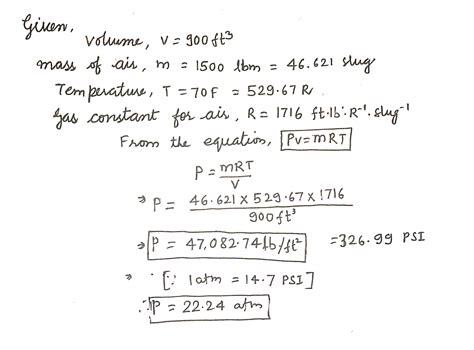 Given,
Volume, V = 900 ft³
mass of air, m = 1500 lbm = 46.621 slug
Temperature, T = 70F = 529.67 R
Gas constant for air, R = 1716 ft·lb·R⁻¹·slug⁻¹
From the equation, PV = mRT
P = mRT/V
⇒ P = 46.621 × 529.67 × 1716 / 900 ft³
⇒ P = 47,082.74 lb/ft² = 326.99 PSI
⇒ [∵ 1 atm = 14.7 PSI]
∴ P = 22.24 atm